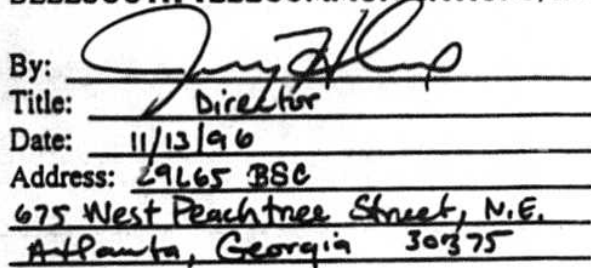 By:
Title: Director
Date: 11/13/96
Address: 29L65 BSC
675 West Peachtree Street, N.E.
Atlanta, Georgia 30375